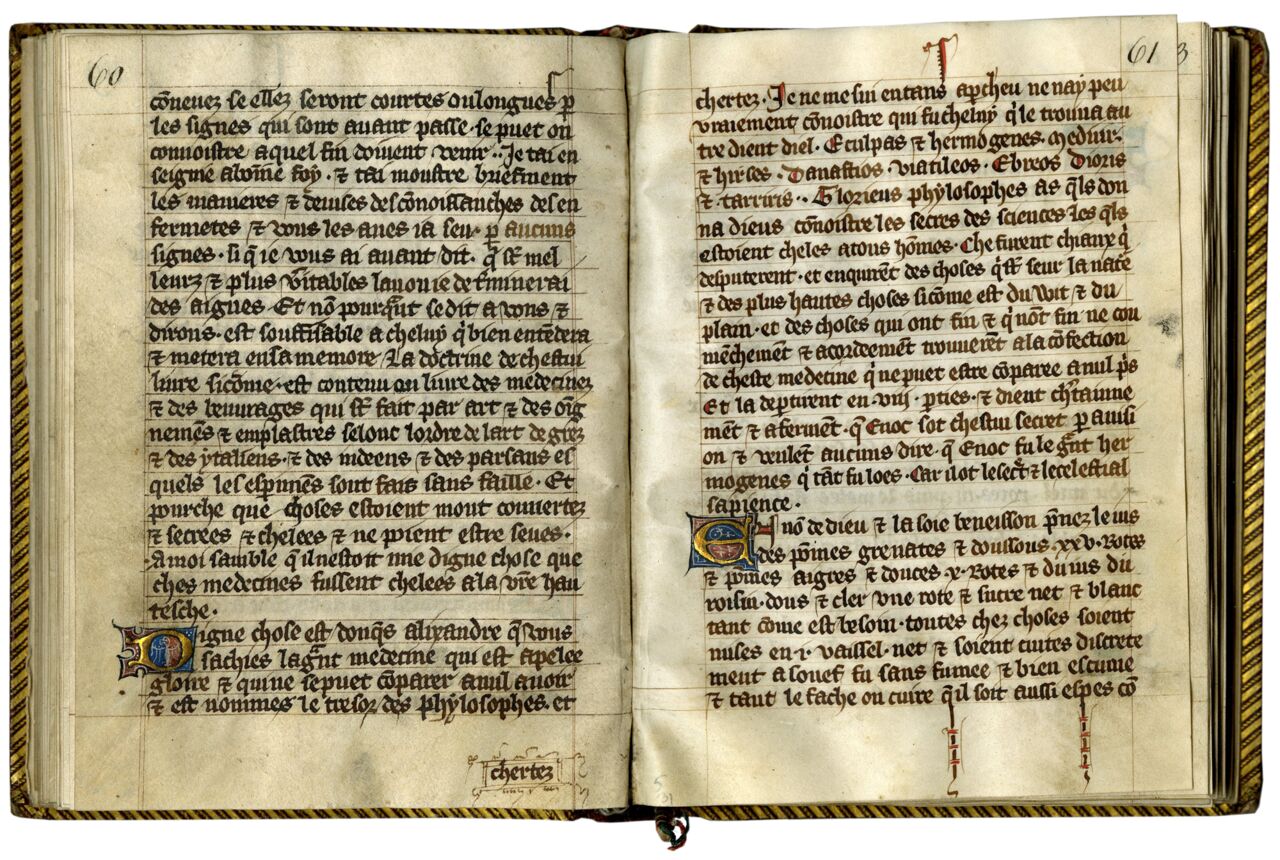 60
cōueuez se ellez seront courtes ou longues ꝑ
les signes qui sont auant passe · se puet on
connoistre a quel fin doiuent venir · Je tai en
seigne a bōine foy · ⁊ tai moustre briefment
les manieres ⁊ deuises des cōnoissanches des en
fermetes ⁊ vous les aues ia seu · ꝑ aucuns
signes · si q̄ ie vous ai auant dit · q̄ sōt mel
leurz ⁊ plus v̄itables la uoie de t̄minerai
des aigues · Et nō pourq̄nt se dit a vous ⁊
dirons · est souffisable a cheluy q̄ bien entēdera
⁊ metera en sa memore · La doctrine de chestui
liure sicōme · est contenu ou liure des medecinez
⁊ des beuurages qui sōt fait par art ⁊ des oīg
nemēs ⁊ emplastres selonc lordre de lart de grez
⁊ des ytaliens · ⁊ des indeens ⁊ des parsans es
quels les esperimēs sont fais sans faille · Et
pourche que choses estoient mout couuertez
⁊ secrees ⁊ chelees ⁊ ne poient estre seues ·
A moi samble qͥl nestoit mie digne chose que
ches medecines fussent chelees a la vr̄e hau
tesche ·
Digne chose est donq̄s alixandre q̄ vous
sachies la grāt medecine qui est apelee
gloire ⁊ qui ne se puet cōparer a nul auoir
⁊ est nommes le tresor des phylosophes · et
chertez
61
3
chertez · Je ne me sui en tans aꝑcheu ne nay peu
vraiement cōnoistre qui fu cheluy qͥ le trouua au
tre dient diel · Eculpas ⁊ hermogenes · Meduir ·
⁊ hirses · Danastios · viatileos · Ebreos Dioris
⁊ · tarriris · Glorieus phylosophes as q̄ls don
na dieus cōnoistre les secres des sciences les q̄ls
estoient cheles a tous hōmes · Che furent chiaux qͥ
desputerent · et enquirēt des choses qͥ sōt seur la natē
⁊ des plus hautes choses sicōme est du wit ⁊ du
plain · et des choses qui ont fin ⁊ qͥ nōt fin ne cou
mēchemēt ⁊ acordeement trouuerēt a la cōfection
de cheste medecine qͥ ne puet estre cōparee a nul pͥs
Et la deꝑtirent en · viij · ꝑties · ⁊ dient ch̄taine
mēt ⁊ aferment · q̄ Enoc sot chestui secret ꝑ auisi
on ⁊ veulēt aucuns dire · q̄ Enoc fu le grāt her
mogenes qͥ tāt fu loes · Car il ot le secr̄t ⁊ le celestial
sapience ·
En nō de dieu ⁊ la soie beneisson p̄nez le ius
des pōmes grenates ⁊ doussous · xxv · Rotes
⁊ pōmes aigres ⁊ douces · x · Rotes ⁊ du ius du
roisin · dous ⁊ cler vne rote ⁊ sucre net ⁊ blanc
tant cōme est besoin · toutes chez choses soient
mises en · i · vaissel · net ⁊ soient cuites discrete
ment a souef fu sans fumee ⁊ bien escume
⁊ tant le fache on cuire qͥl soit aussi espes cō